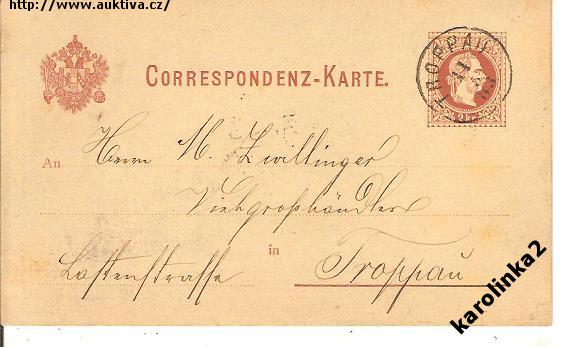 http://www.auktiva.cz/
CORRESPONDENZ-KARTE.
TROPPAU
2 kr
An
Herrn M. Zwillinger
Viehgroßhändler
in
Lastenstrasse
Troppau
karolinka2